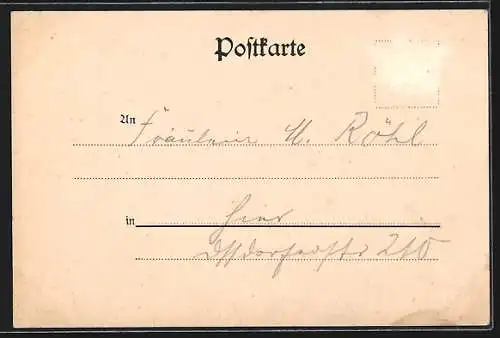 Postkarte
An Fräulein M. Röhl
in Hier
Düsseldorferstr 210